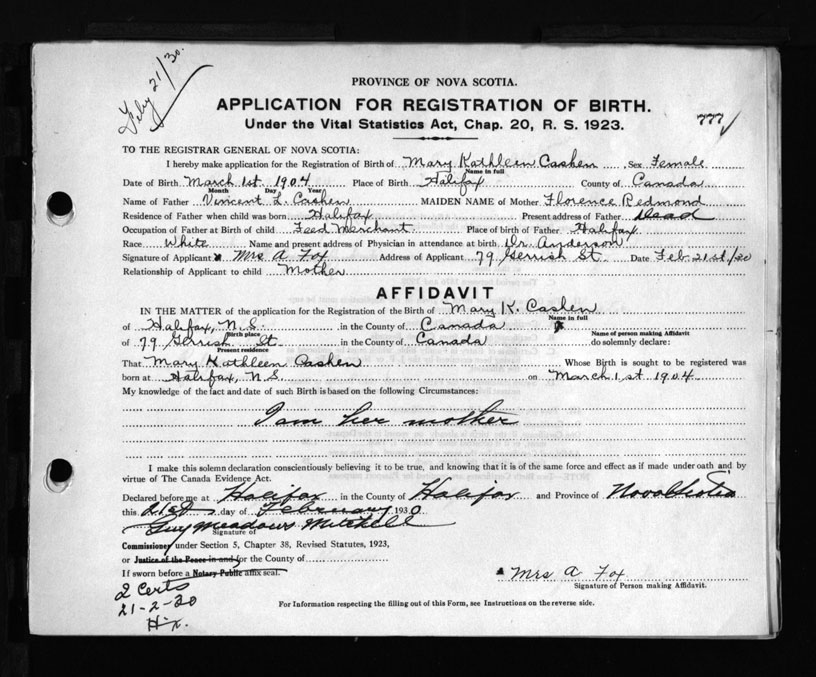 Feby 21/30.
PROVINCE OF NOVA SCOTIA.
APPLICATION FOR REGISTRATION OF BIRTH.
Under the Vital Statistics Act, Chap. 20, R. S. 1923.
777
TO THE REGISTRAR GENERAL OF NOVA SCOTIA:
I hereby make application for the Registration of Birth of Mary Kathleen Cashen Sex Female
Name in full
Date of Birth March 1st 1904 Place of Birth Halifax County of Canada
Month Day Year
Name of Father Vincent L. Cashen MAIDEN NAME of Mother Florence Redmond
Residence of Father when child was born Halifax Present address of Father Dead
Occupation of Father at Birth of child Feed Merchant Place of birth of Father Halifax
Race White Name and present address of Physician in attendance at birth Dr. Anderson
Signature of Applicant Mrs A Fox Address of Applicant 79 Gerrish St. Date Feb. 21st/30
Relationship of Applicant to child Mother
AFFIDAVIT
IN THE MATTER of the application for the Registration of the Birth of Mary K. Cashen
Name in full
of Halifax, N.S. in the County of Canada
Birth place Name of person making Affidavit
of 79 Gerrish St in the County of Canada do solemnly declare:
Present residence
That Mary Kathleen Cashen Whose Birth is sought to be registered was
born at Halifax, N.S. on March 1st 1904
My knowledge of the fact and date of such Birth is based on the following Circumstances:
I am her mother
I make this solemn declaration conscientiously believing it to be true, and knowing that it is of the same force and effect as if made under oath and by
virtue of The Canada Evidence Act.
Declared before me at Halifax in the County of Halifax and Province of Nova Scotia
this 21st day of February 1930
Guy Meadows Mitchell
Signature of
Commissioner under Section 5, Chapter 38, Revised Statutes, 1923,
or Justice of the Peace in and for the County of
If sworn before a Notary Public affix seal.
Mrs A Fox
Signature of Person making Affidavit.
2 Certs
21-2-30
For Information respecting the filling out of this Form, see Instructions on the reverse side.